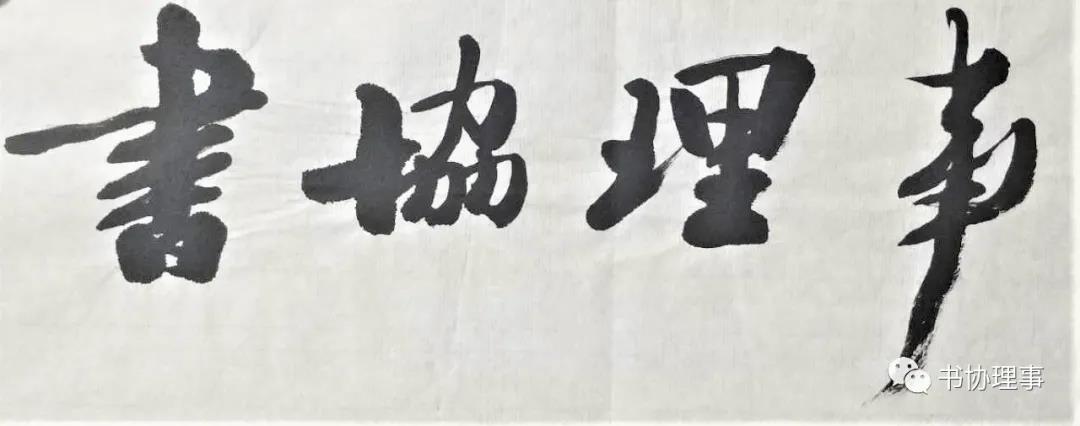 書協理事
书协理事